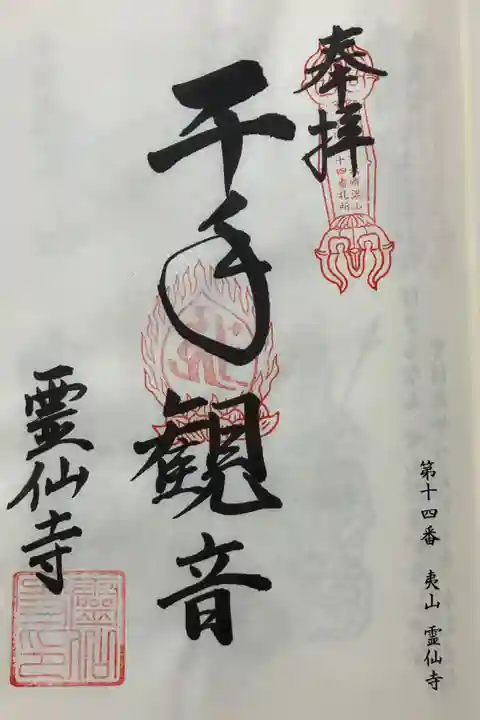 奉拝
千手観音
霊仙寺
第十四番 夷山 霊仙寺
十四番札所